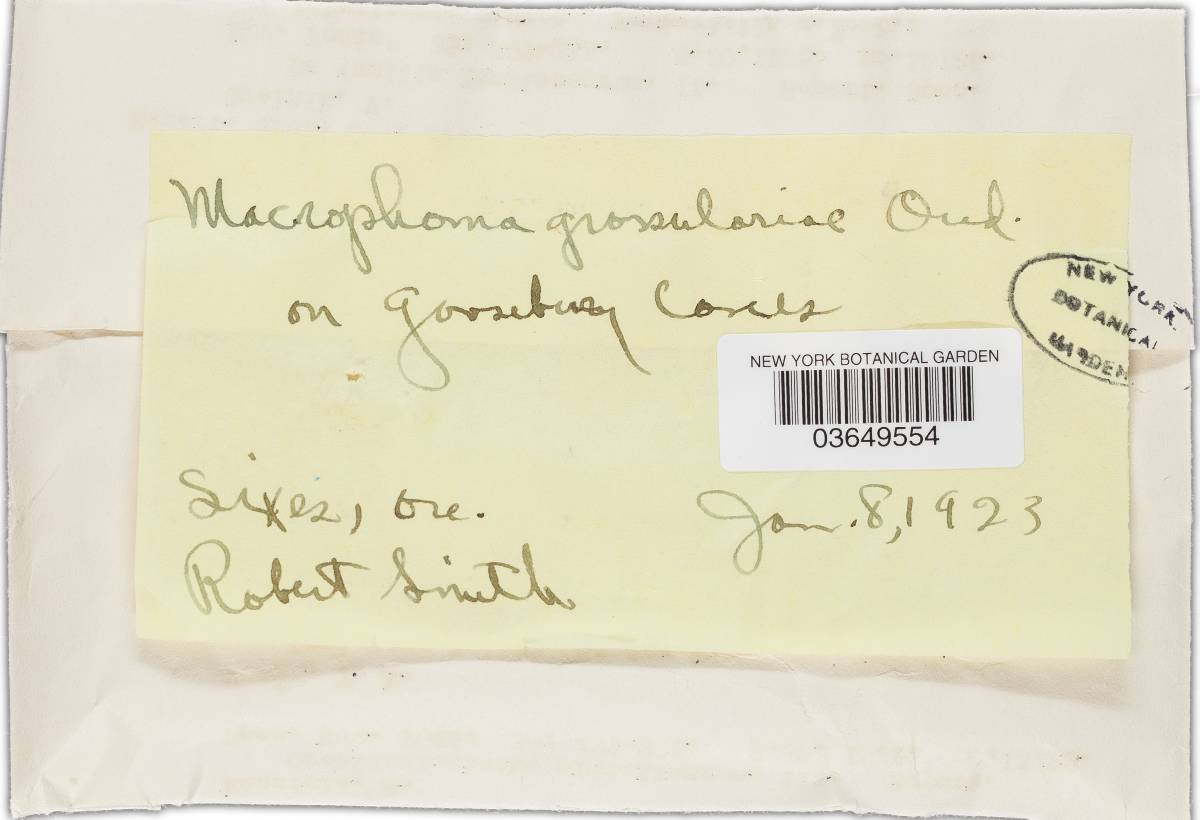 Macrophoma grossulariae Oud.
on Gooseberry Canes
NEW YORK BOTANICAL GARDEN
03649554
NEW YORK
BOTANICAL
GARDEN
Sixes, Ore.
Jan. 8, 1923
Robert Smith